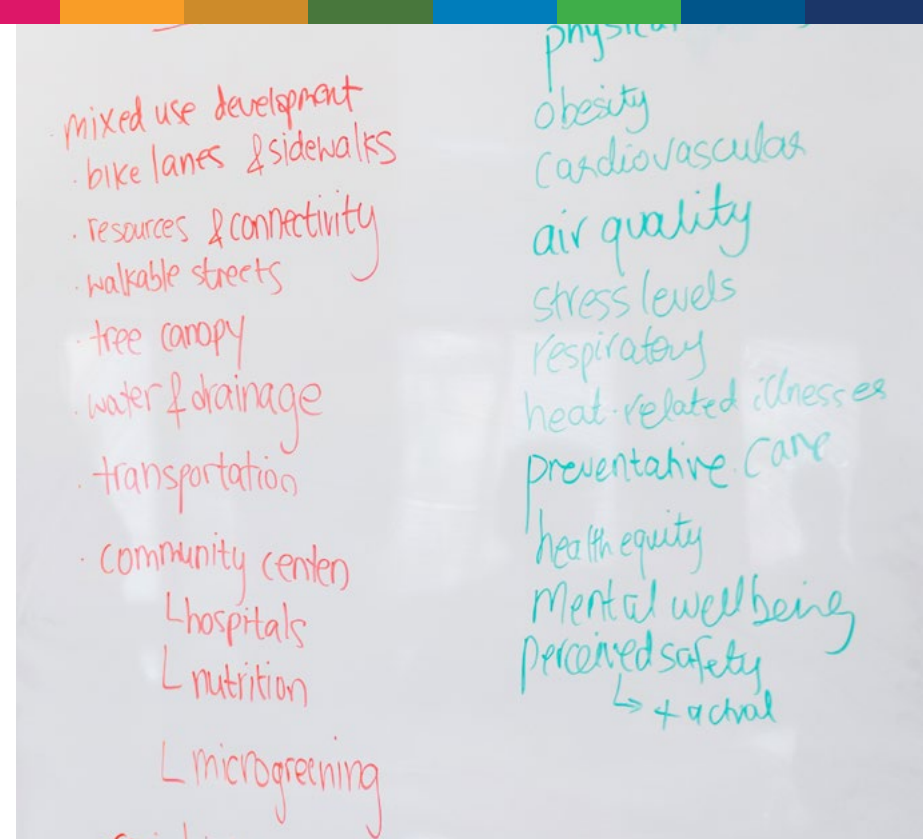 · mixed use development
· bike lanes & sidewalks
· resources & connectivity
· walkable streets
· tree canopy
· water & drainage
· transportation
· community center
L hospitals
L nutrition
L microgreening
physical
obesity
cardiovascular
air quality
stress levels
respiratory
heat-related illnesses
preventative care
health equity
Mental wellbeing
perceived safety
↳ + actual